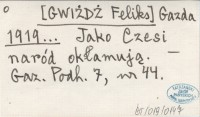 [GWIŻDŻ Feliks] Gazda
1919... Jako Czesi
naród okłamują. –
Gaz. Podh. 7, nr 44.